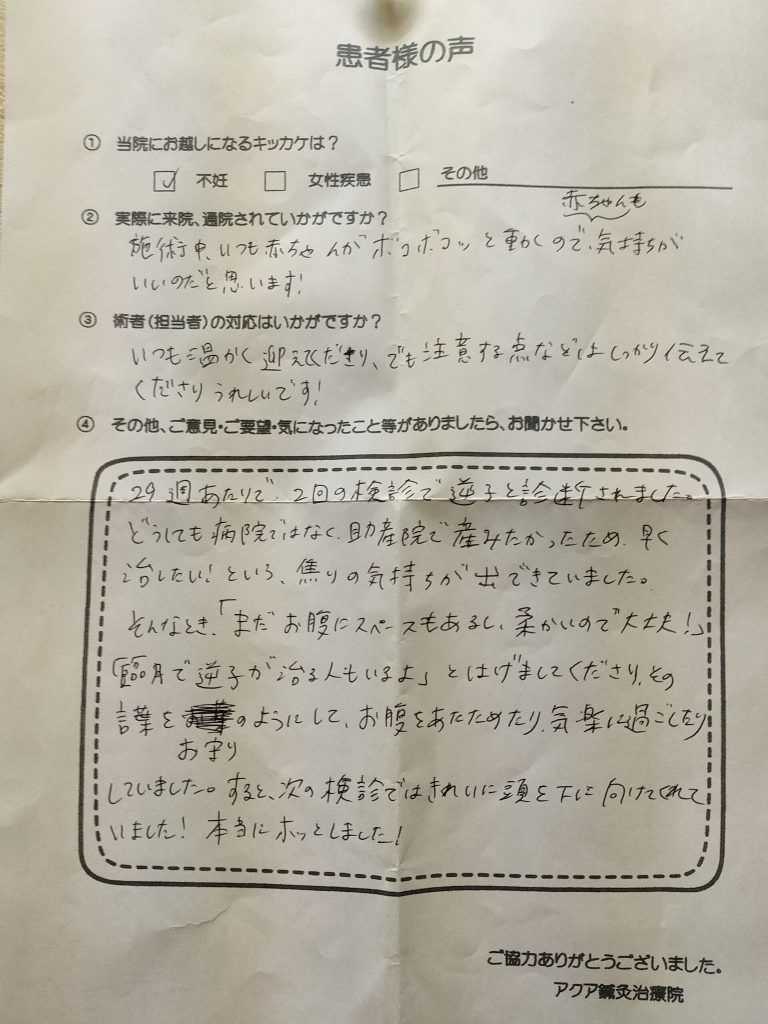 患者様の声
① 当院にお越しになるキッカケは？
☑ 不妊 □ 女性疾患 □ その他
② 実際に来院、通院されていかがですか？
赤ちゃんも
施術中、いつも赤ちゃんがポコポコッと動くので、気持ちが
いいのだと思います！
③ 術者（担当者）の対応はいかがですか？
いつも温かく迎えてくださり、でも注意する点などはしっかり伝えて
くださりうれしいです！
④ その他、ご意見・ご要望・気になったこと等がありましたら、お聞かせ下さい。
29週あたりで、2回の検診で逆子と診断されました。
どうしても病院ではなく、助産院で産みたかったため、早く
治したい！という、焦りの気持ちが出てきていました。
そんなとき、「まだお腹にスペースもあるし、柔かいので大丈夫！」
「臨月で逆子が治る人もいるよ」とはげましてくださり、その
言葉をのようにして、お腹をあたためたり、気楽に過ごしたり
お守り
していました。すると、次の検診ではきれいに頭を下に向けてくれて
いました！本当にホッとしました！
ご協力ありがとうございました。
アクア鍼灸治療院